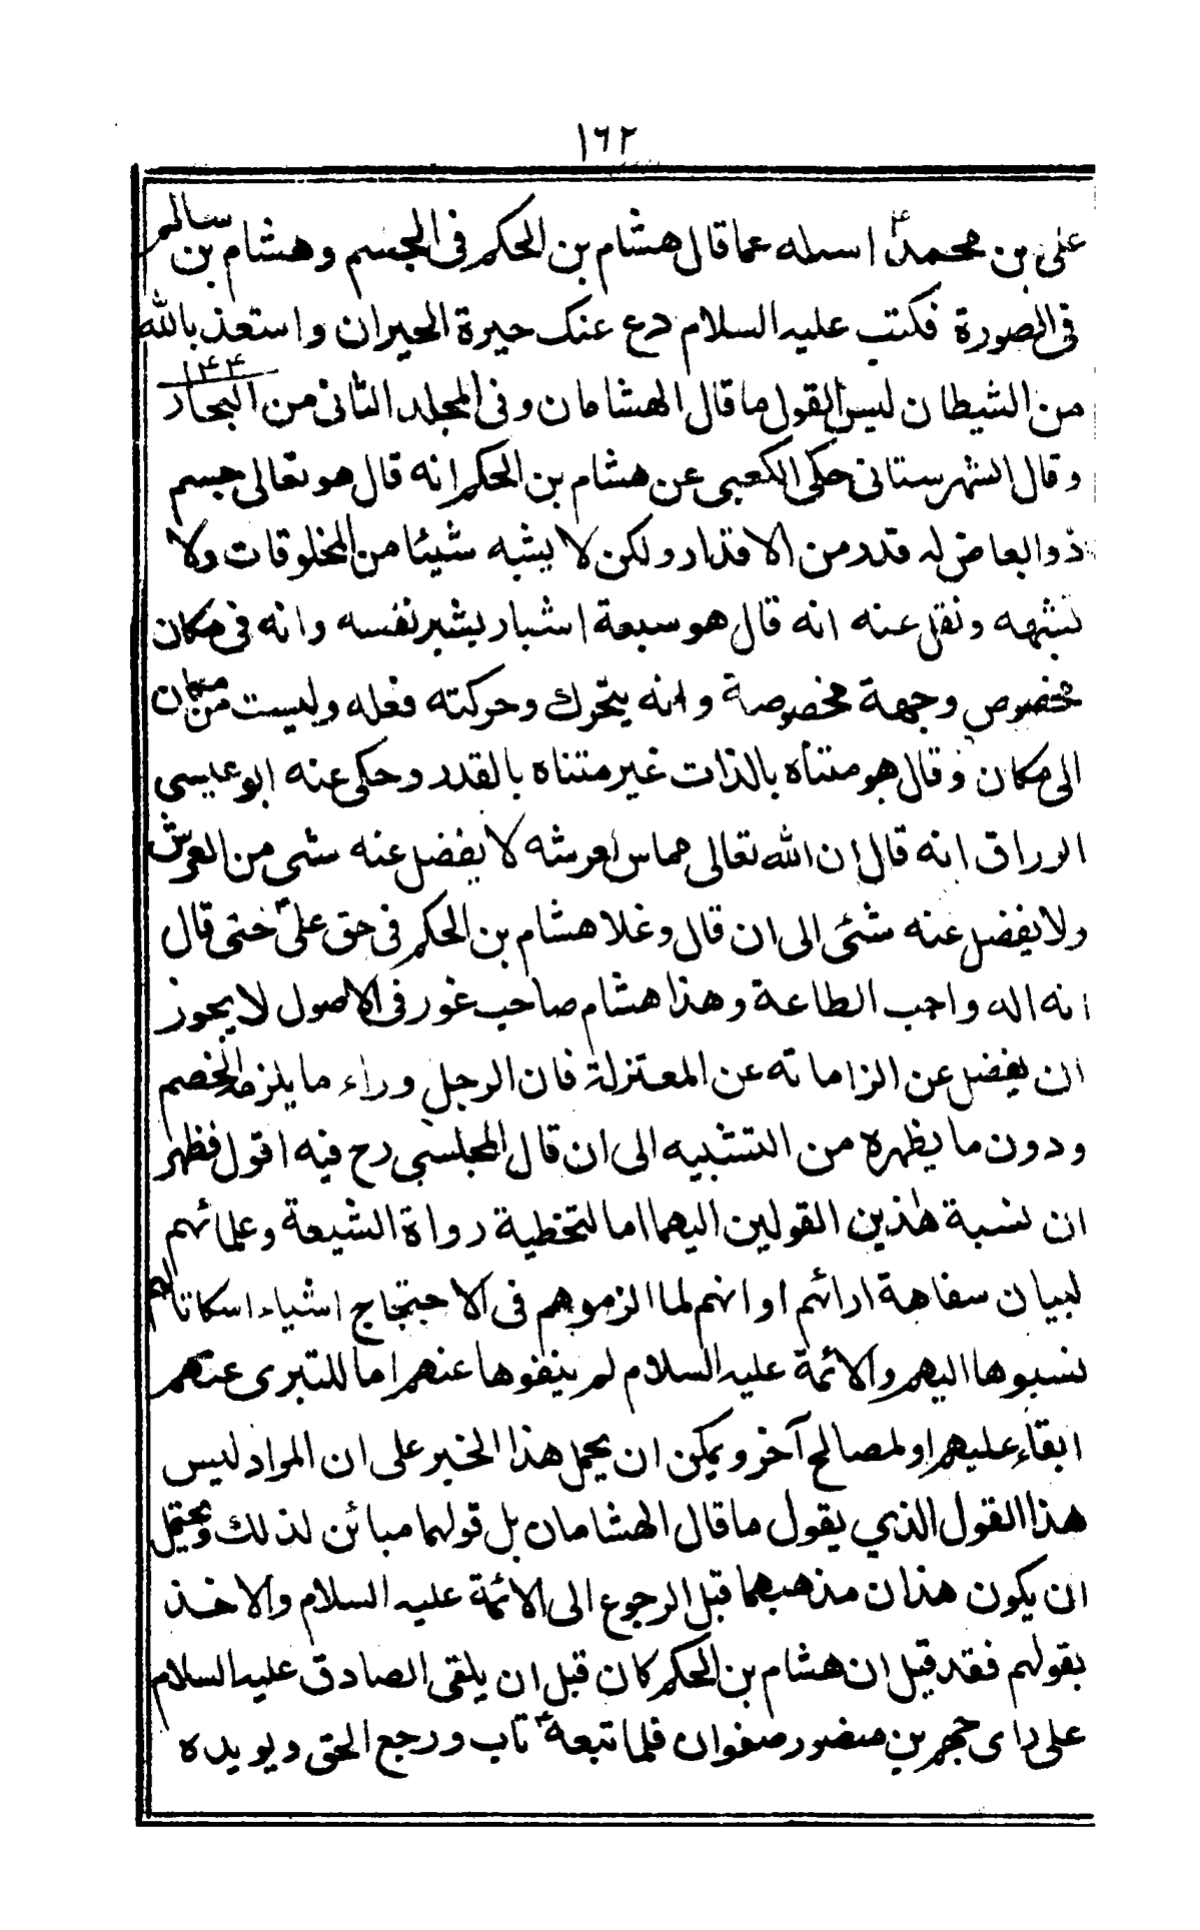 ١٦٢
على بن محمدؑ اسئله عما قال هشام بن الحكم فى الجسم وهشام بن سالم
فى الصورة فكتب عليه السلام دع عنك حيرة الحيران واستعذ بالله
من الشيطان ليس القول ما قال الهشامان وفى المجلد الثانى من البحار ١٤٤
وقال الشهرستانى حكى الكعبى عن هشام بن الحكم انه قال هو تعالى جسم
ذو ابعاض له قدر من الاقدار ولكن لا يشبه شيئا من المخلوقات ولا
تشبهه ونقل عنه انه قال هو سبعة اشبار بشبر نفسه وانه فى مكان
مخصوص وجهة مخصوصة وانه يتحرك وحركته فعله وليست من مكان
الى مكان وقال هو متناه بالذات غير متناه بالقدر وحكى عنه ابو عيسى
الوراق انه قال ان الله تعالى مماس لعرشه لا يفضل عنه شى من العرش
ولا يفضل عنه شئى الى ان قال وغلا هشام بن الحكم فى حق علىؑ حتى قال
انه اله واجب الطاعة وهذا هشام صاحب غور فى الاصول لا يجوز
ان يغفضل عن الزاماته عن المعتزلة فان الرجل وراء ما يلزمه الخصم
ودون ما يظهره من التشبيه الى ان قال المجلسى رح فيه اقول فظهر
ان نسبة هذين القولين اليهما اما لتخطية رواة الشيعة وعلمائهم
لبيان سفاهة ارائهم او انهم لما الزموهم فى الاحتجاج اشياء اسكاتا لهم
نسبوها اليهم والائمة عليه السلام لم ينفوها عنهم اما للتبرى عنهم
ابقاء عليهم او لمصالح آخر ويمكن ان يحمل هذا الخبر على ان المراد ليس
هذا القول الذي يقول ما قال الهشامان بل قولهما مبائن لذلك ويحتمل
ان يكون هذان مذهبهما قبل الرجوع الى الائمة عليه السلام والاخذ
بقولهم فقد قيل ان هشام بن الحكم كان قبل ان يلقى الصادق عليه السلام
على راى جهم بن صفوان فلما تبعهؑ تاب ورجع الحق ويويده